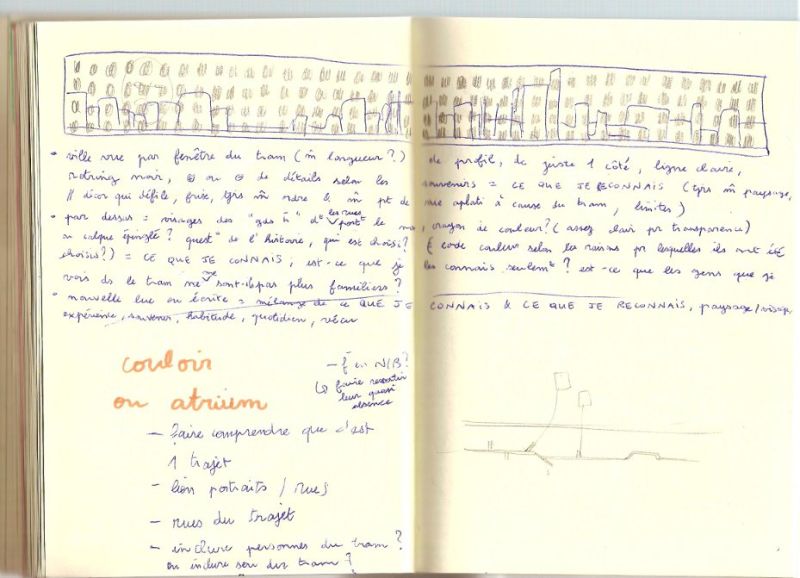 • ville vue par fenêtre du tram (m̂ longueur?) de profil, de juste 1 côté, ligne claire,
rotring noir, ⊕ ou ⊖ de détails selon les souvenirs = CE QUE JE RECONNAIS (tjrs m̂ paysage,
// décor qui défile, frise, tjrs m̂ ordre & m̂ pt de vue aplati à cause du tram, limites)
• par dessus = visages des "gds H" dt les rues portt le , crayon de couleur? (assez clair pr transparence)
ou calque épinglé? questo de l'histoire, qui est choisi? code couleur selon les raisons pr lesquelles ils ont été
choisis?) = CE QUE JE CONNAIS, est-ce que je les connais seulemt? est-ce que les gens que je
vois ds le tram ne me sont-ils pas plus familiers?
• nouvelle lue ou écrite = mélange de CE QUE JE CONNAIS & CE QUE JE RECONNAIS, paysage/visage
expérience, souvenir, habitude, quotidien, vécu
couloir
ou atrium
– en N/B?
↳ faire ressortir
leur quasi
absence
– Faire comprendre que c'est
1 trajet
– lien portraits / rues
– rues du trajet
– inclure personnes du tram?
ou inclure son du tram?